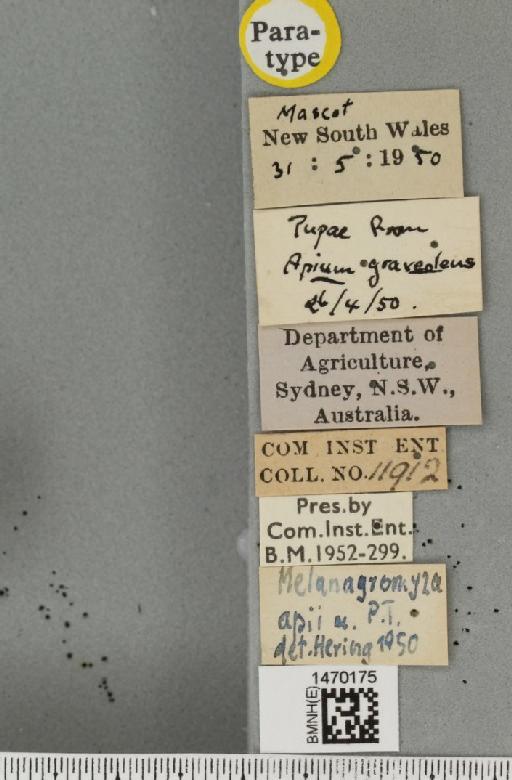 Para-
type
Mascot
New South Wales
31 : 5 : 1950
Pupae from
Apium graveolens
26/4/50.
Department of
Agriculture,
Sydney, N.S.W.,
Australia.
COM INST ENT
COLL. NO. 11912
Pres.by
Com.Inst.Ent.
B.M.1952-299.
Melanagromyza
apii n. P.T.
det. Hering 1950
BMNH(E)
1470175